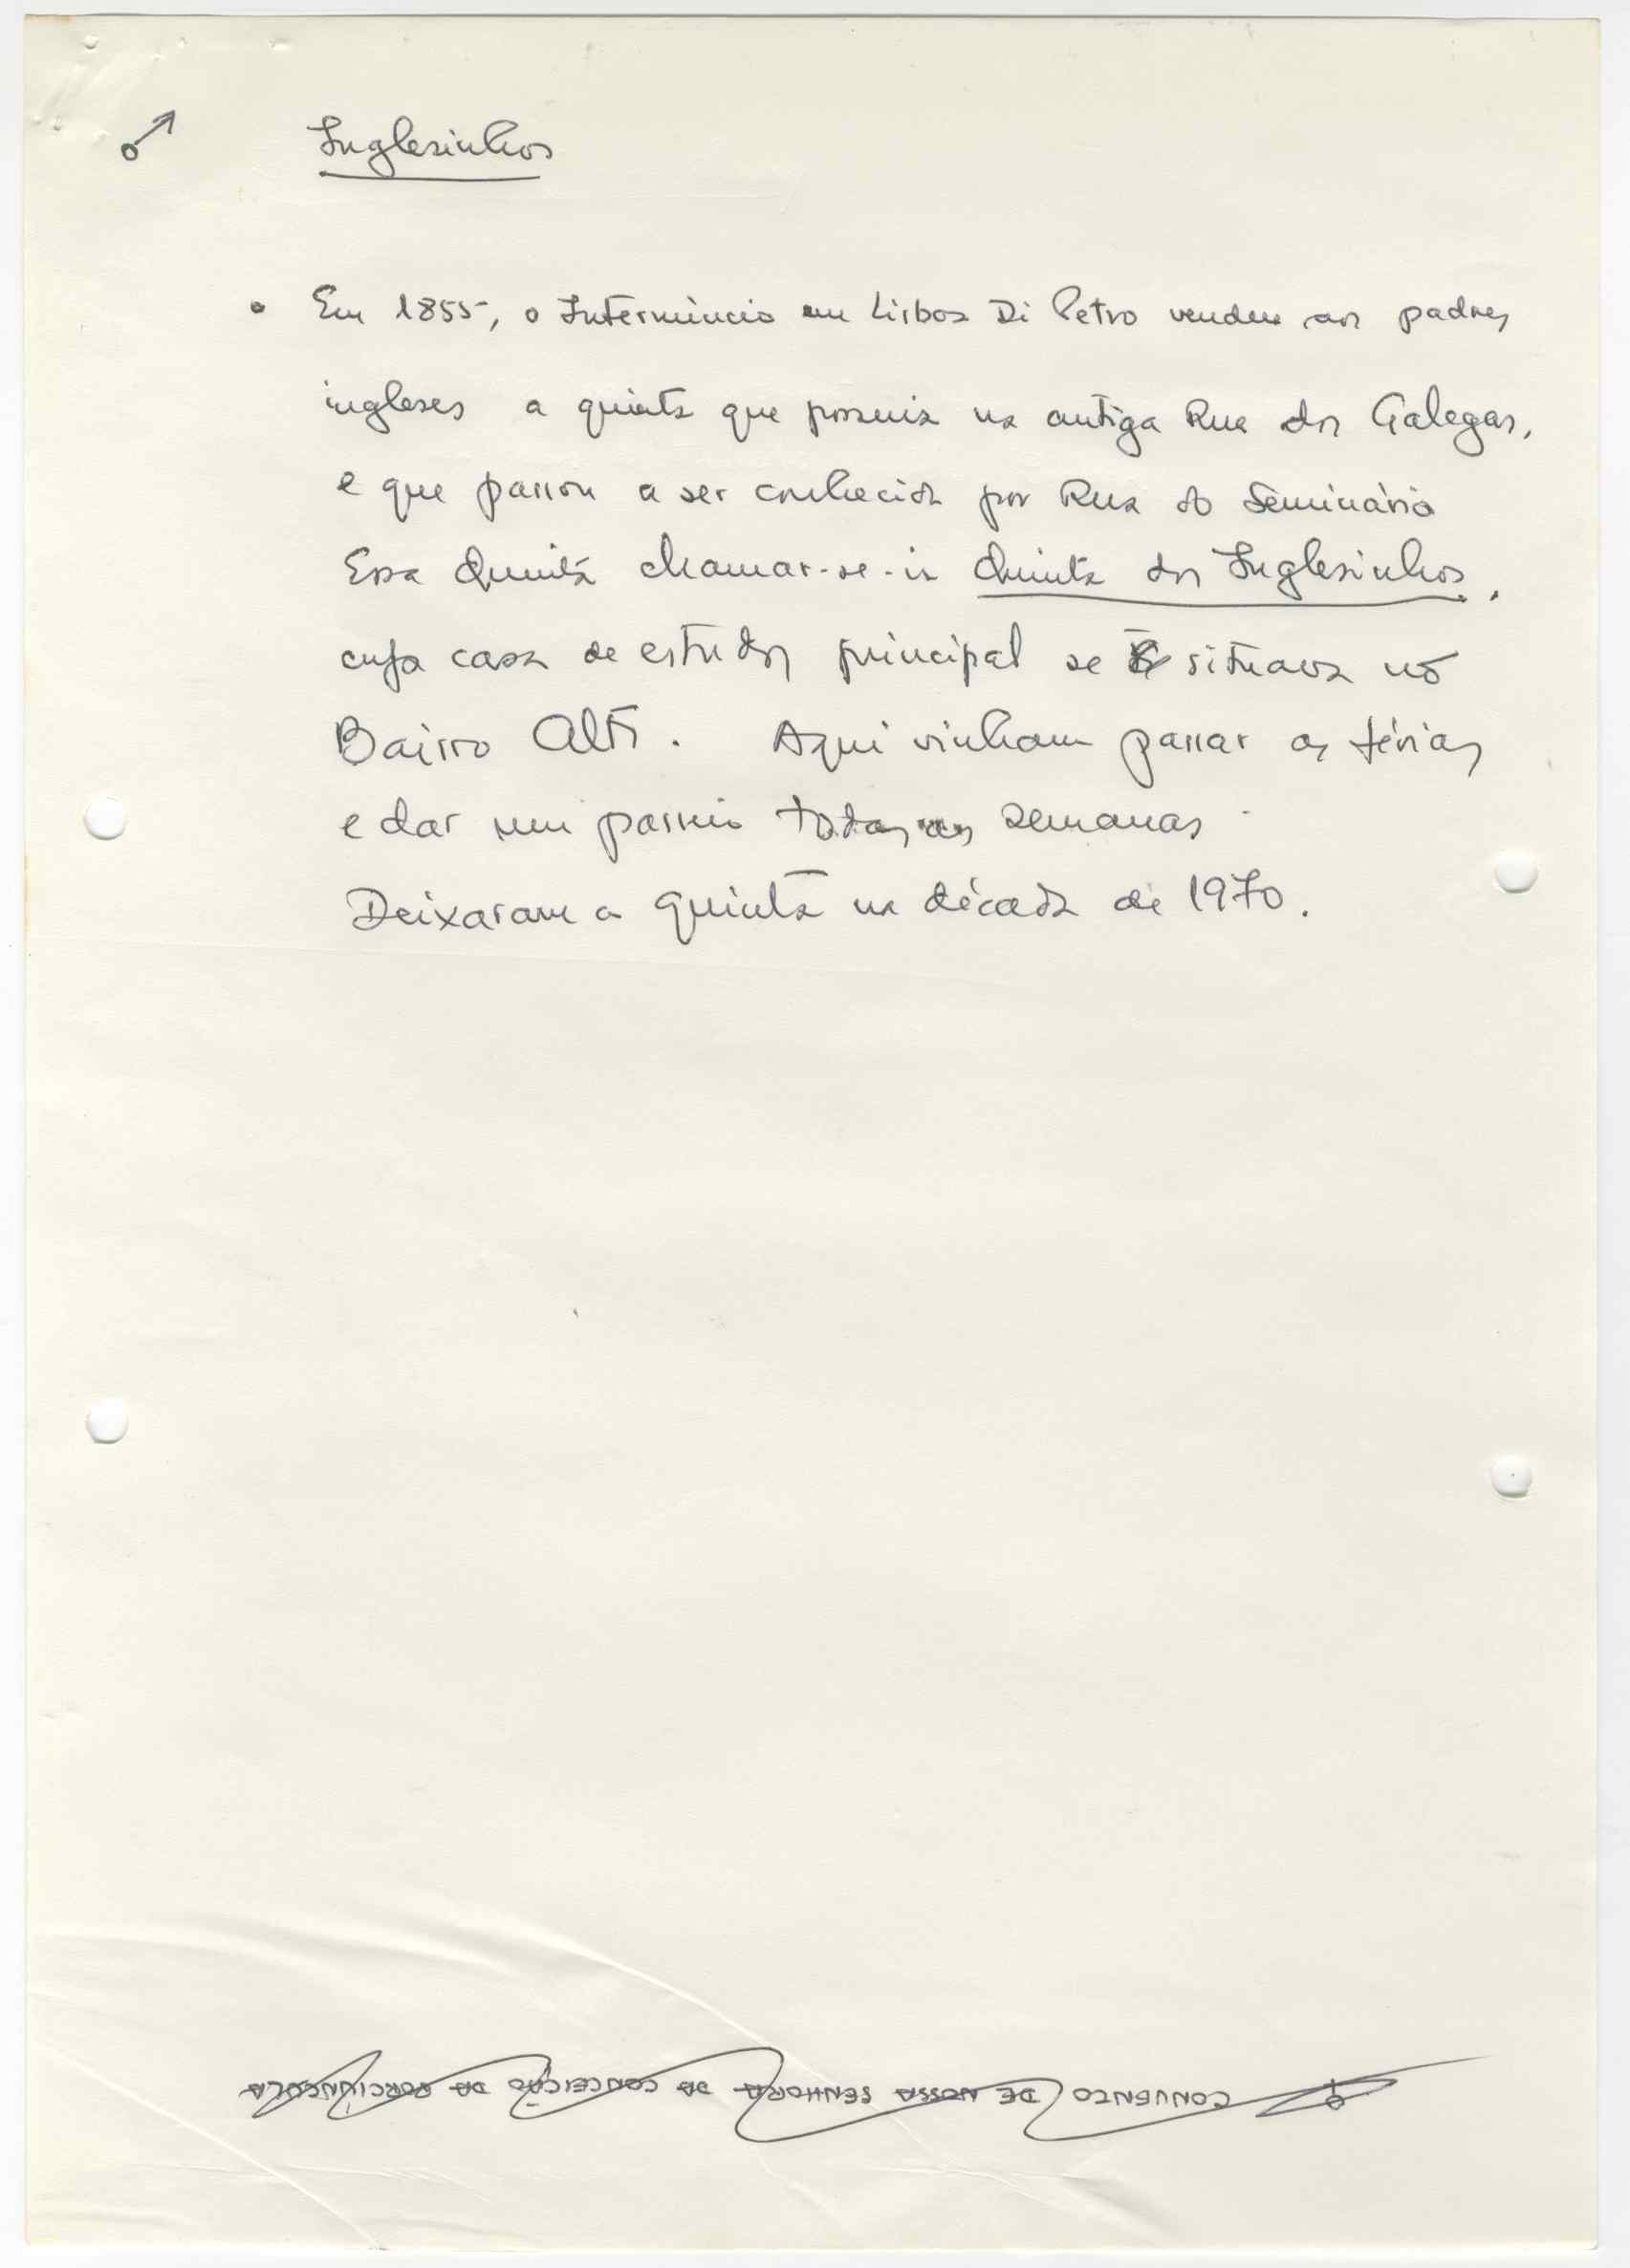 Inglesinhos
• Em 1855, o Internúncio em Lisboa Di Petro vendeu aos padres
ingleses a quinta que possuia na antiga Rua dos Galegos,
e que passou a ser conhecida por Rua do Seminário
Essa Quinta chamar-se-ia Quinta dos Inglesinhos,
cuja casa de estudos principal se situava no
Bairro Alto. Aqui vinham passar as férias
e dar um passeio todas as semanas.
Deixaram a quinta na década de 1970.
CONVENTO DE NOSSA SENHORA DA CONCEIÇÃO DA PORCIÚNCULA